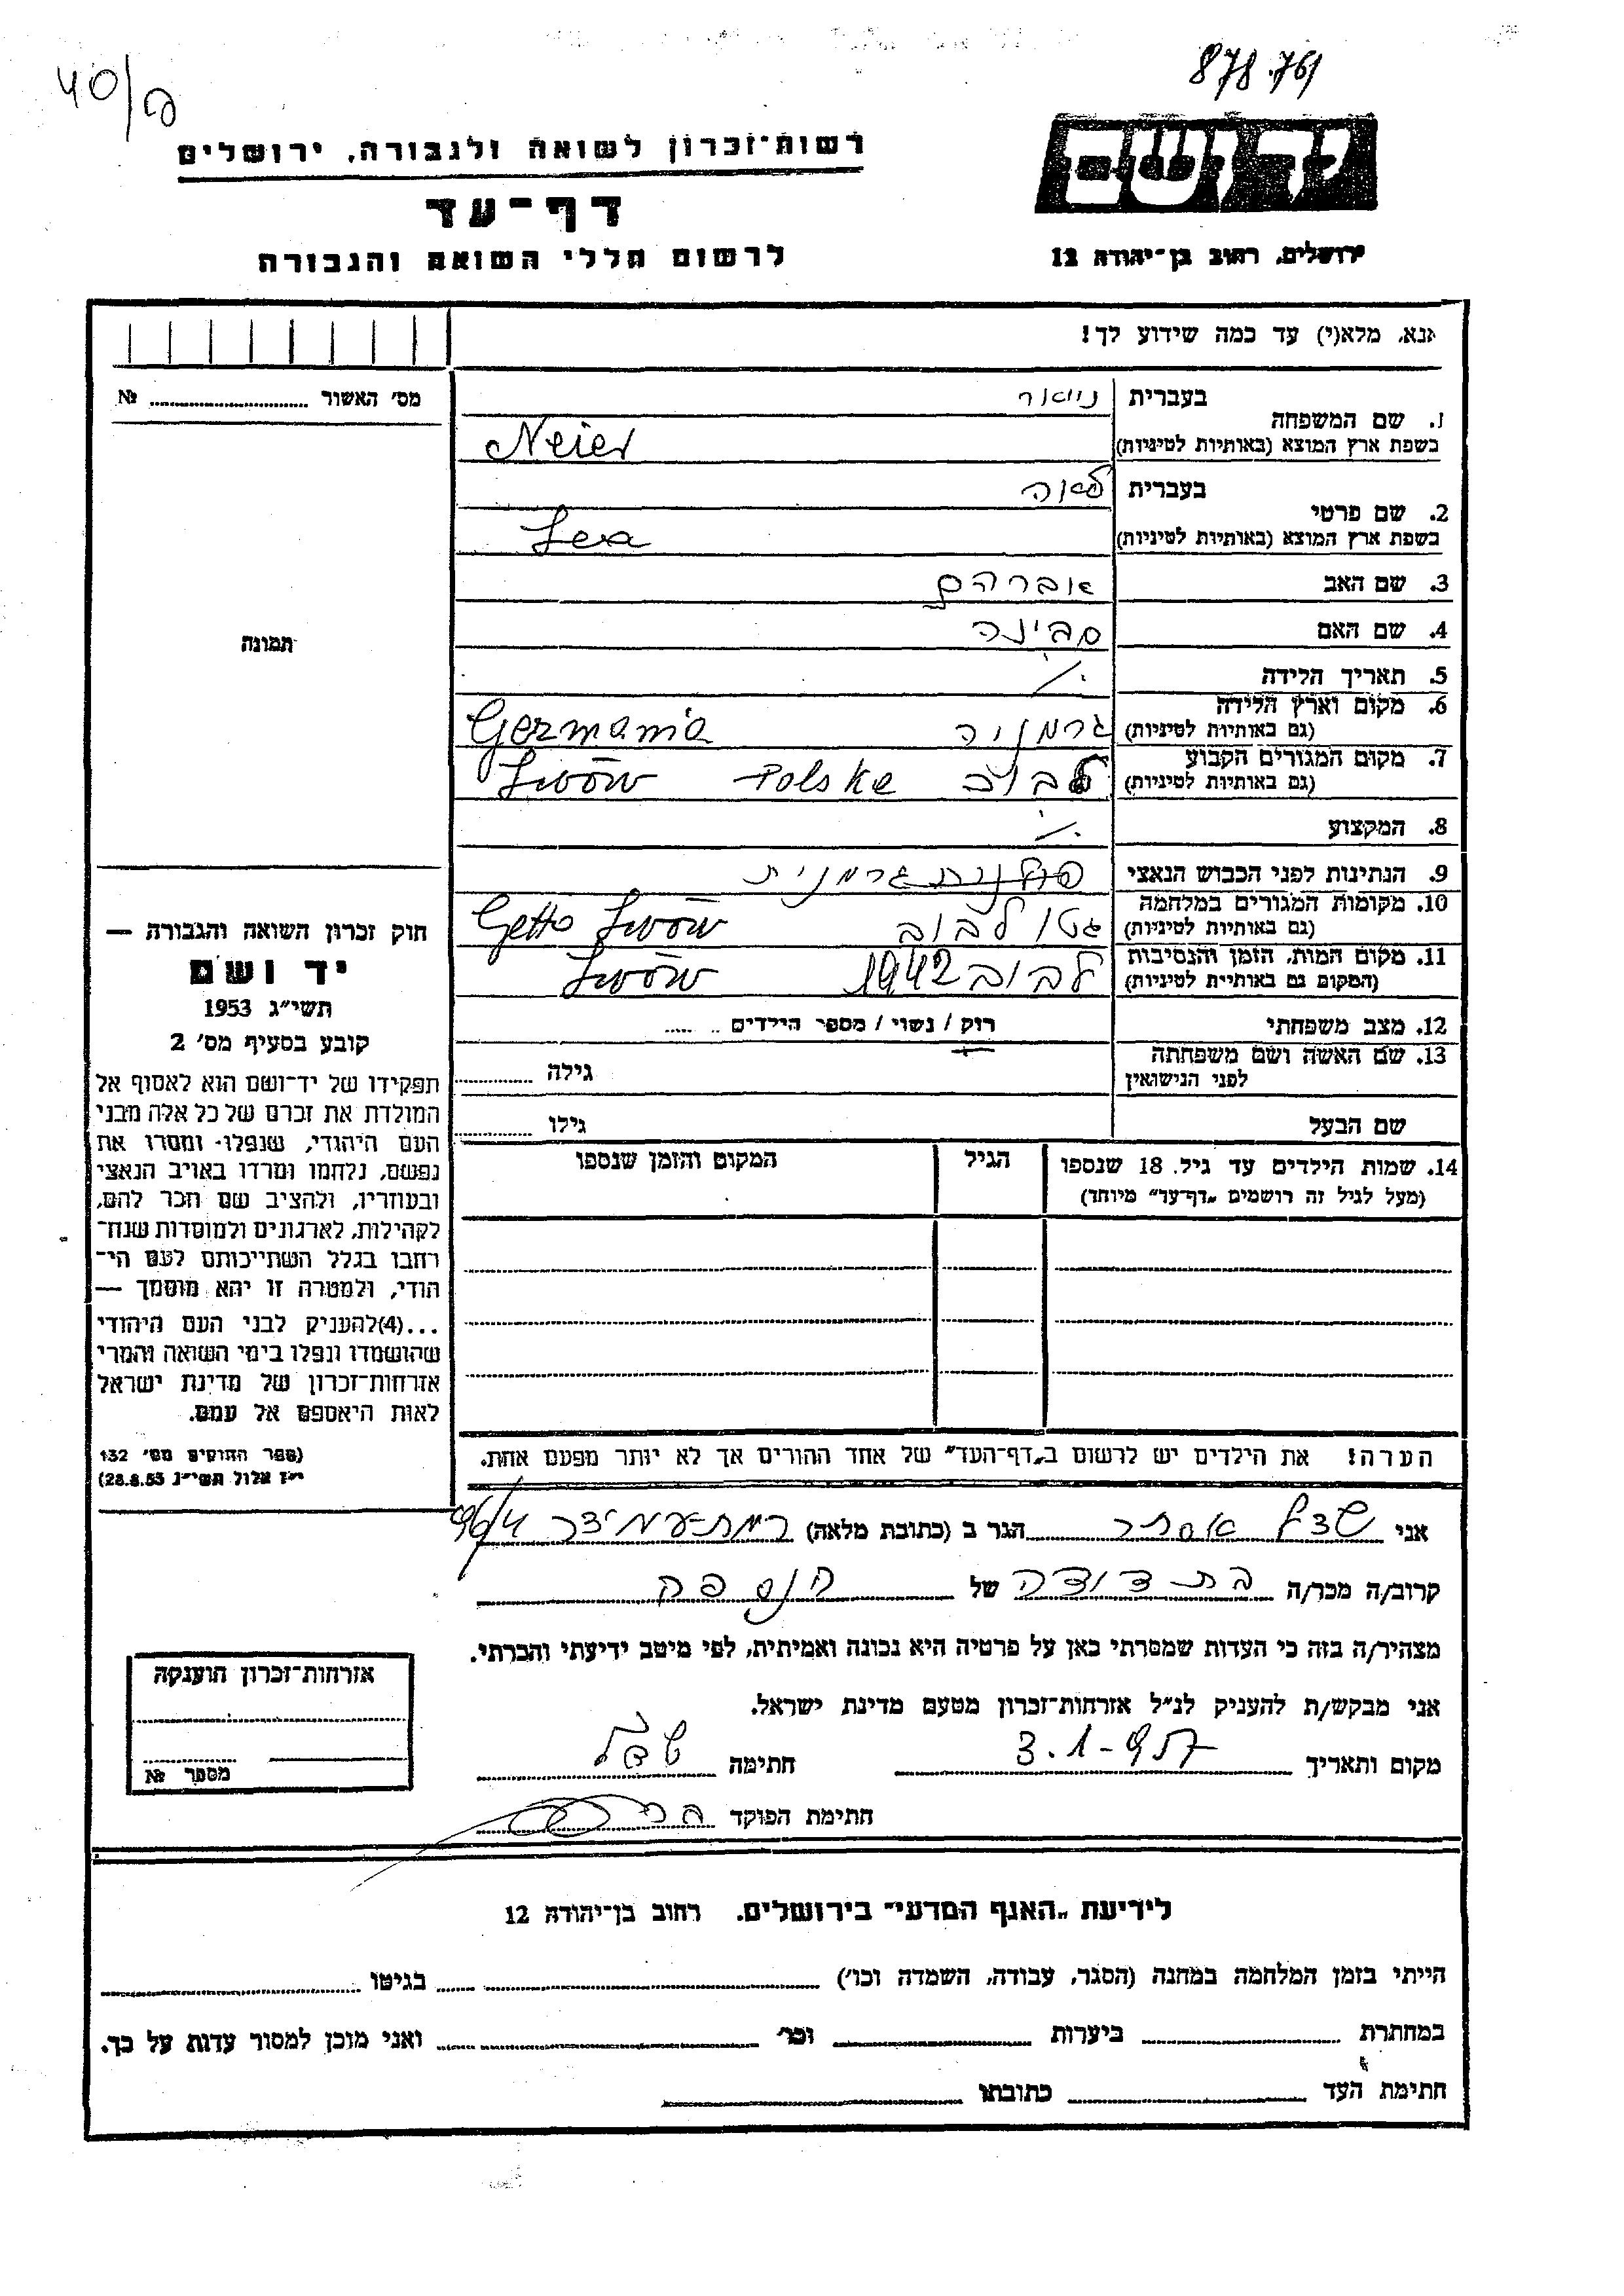 40/ס
878.761
רשות-זכרון לשואה ולגבורה, ירושלים
דף-עד
לרשום חללי השואה והגבורה
יד ושם
ירושלים, רחוב בן-יהודה 12
אנא, מלא(י) עד כמה שידוע לך!
מס' האשור № 
1. שם המשפחה בעברית נייאר
בשפת ארץ המוצא (באותיות לטיניות) Neier
2. שם פרטי בעברית לאה
בשפת ארץ המוצא (באותיות לטיניות) Lea
3. שם האב אברהם
4. שם האם סבינה
תמונה
5. תאריך הלידה ./.
6. מקום וארץ הלידה
(גם באותיות לטיניות) גרמניה Germania
7. מקום המגורים הקבוע
(גם באותיות לטיניות) לבוב Lwów Polska
8. המקצוע ./.
9. הנתינות לפני הכבוש הנאצי פולנית גרמנית
10. מקומות המגורים במלחמה
(גם באותיות לטיניות) גטו לבוב Getto Lwów
11. מקום המות, הזמן והנסיבות
(המקום גם באותיות לטיניות) לבוב 1942 Lwów
12. מצב משפחתי רוק / נשוי / מספר הילדים
13. שם האשה ושם משפחתה
לפני הנישואין גילה
שם הבעל גילו
14. שמות הילדים עד גיל 18 שנספו הגיל המקום והזמן שנספו
(מעל לגיל זה רושמים "דף-עד" מיוחד)
חוק זכרון השואה והגבורה —
יד ושם
תשי"ג 1953
קובע בסעיף מס' 2
תפקידו של יד-ושם הוא לאסוף אל
המולדת את זכרם של כל אלה מבני
העם היהודי, שנפלו ומסרו את
נפשם, נלחמו ומרדו באויב הנאצי
ובעוזריו, ולהציב שם וזכר להם,
לקהילות, לארגונים ולמוסדות שנח-
רבו בגלל השתייכותם לעם הי-
הודי, ולמטרה זו יהא מוסמך —
...(4) להעניק לבני העם היהודי
שהושמדו ונפלו בימי השואה והמרי
אזרחות-זכרון של מדינת ישראל
לאות היאספם אל עמם.
(ספר החוקים מס' 132
י"ז אלול תשי"ג 28.8.53)
הערה! את הילדים יש לרשום ב"דף-העד" של אחד ההורים אך לא יותר מפעם אחת.
אני אסתר הגר ב (כתובת מלאה) רמת-עמידר 96/4
קרוב/ה מכר/ה בת דודה של
מצהיר/ה בזה כי העדות שמסרתי כאן על פרטיה היא נכונה ואמיתית, לפי מיטב ידיעתי והכרתי.
אני מבקש/ת להעניק לנ"ל אזרחות-זכרון מטעם מדינת ישראל.
מקום ותאריך 3.1-957 חתימה
חתימת הפוקד
אזרחות-זכרון הוענקה
מספר №
לידיעת "האגף המדעי" בירושלים, רחוב בן-יהודה 12
הייתי בזמן המלחמה במחנה (הסגר, עבודה, השמדה וכו') בגיטו
במחתרת ביערות וכו' ואני מוכן למסור עדות על כך.
חתימת העד כתובתו